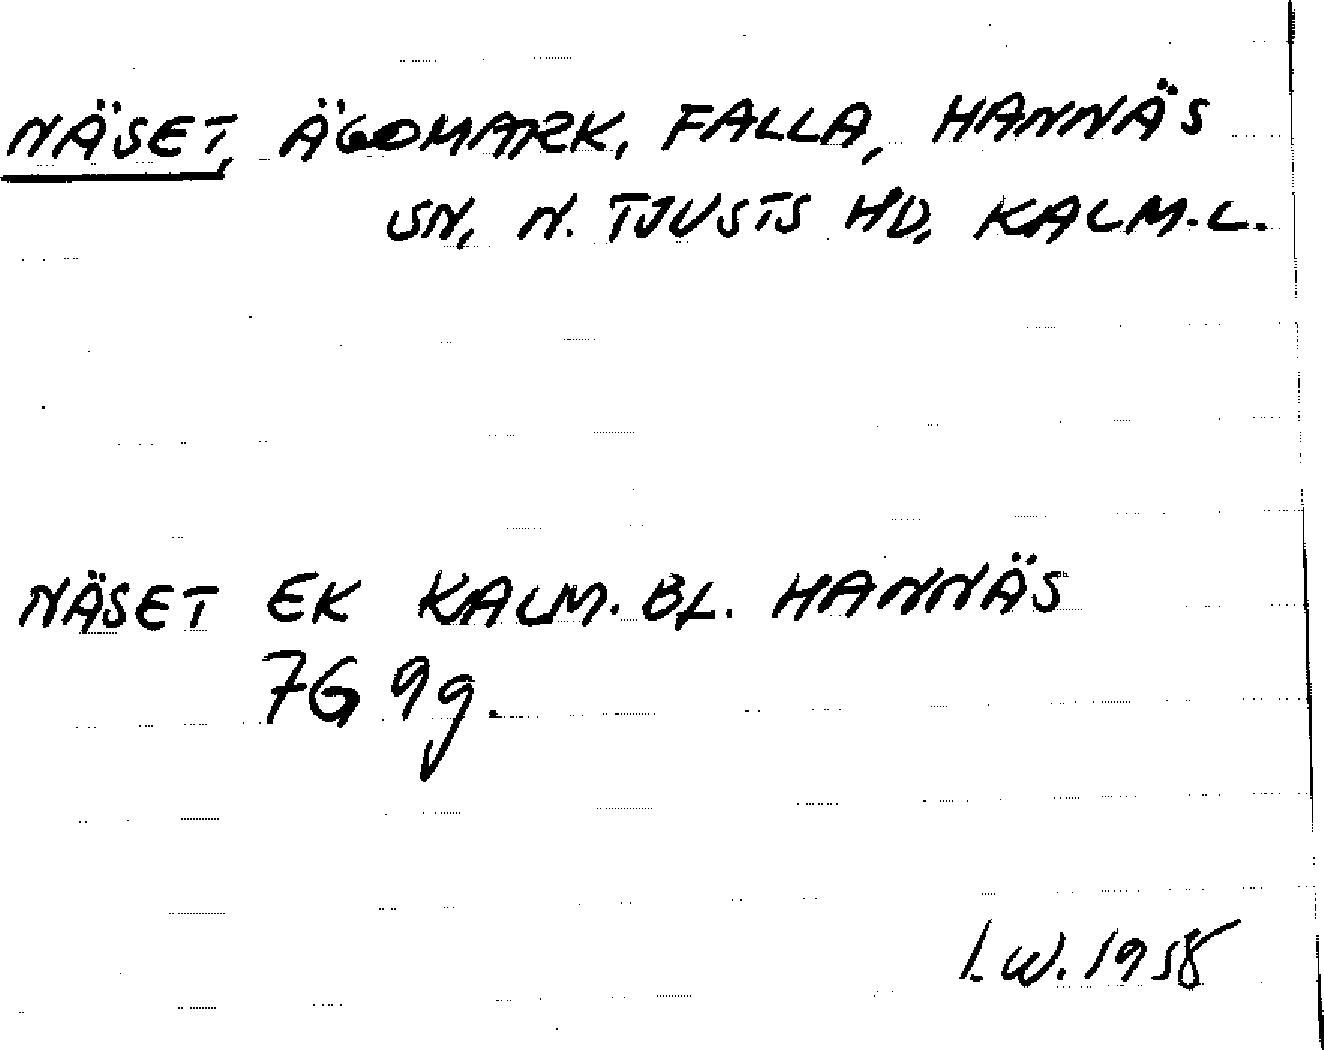 NÄSET, ÄGOMARK, FALLA, HANNÄS
SN, N. TJUSTS HD, KALM.L.
NÄSET EK KALM. BL. HANNÄS
7G 9g.
I.W. 1958